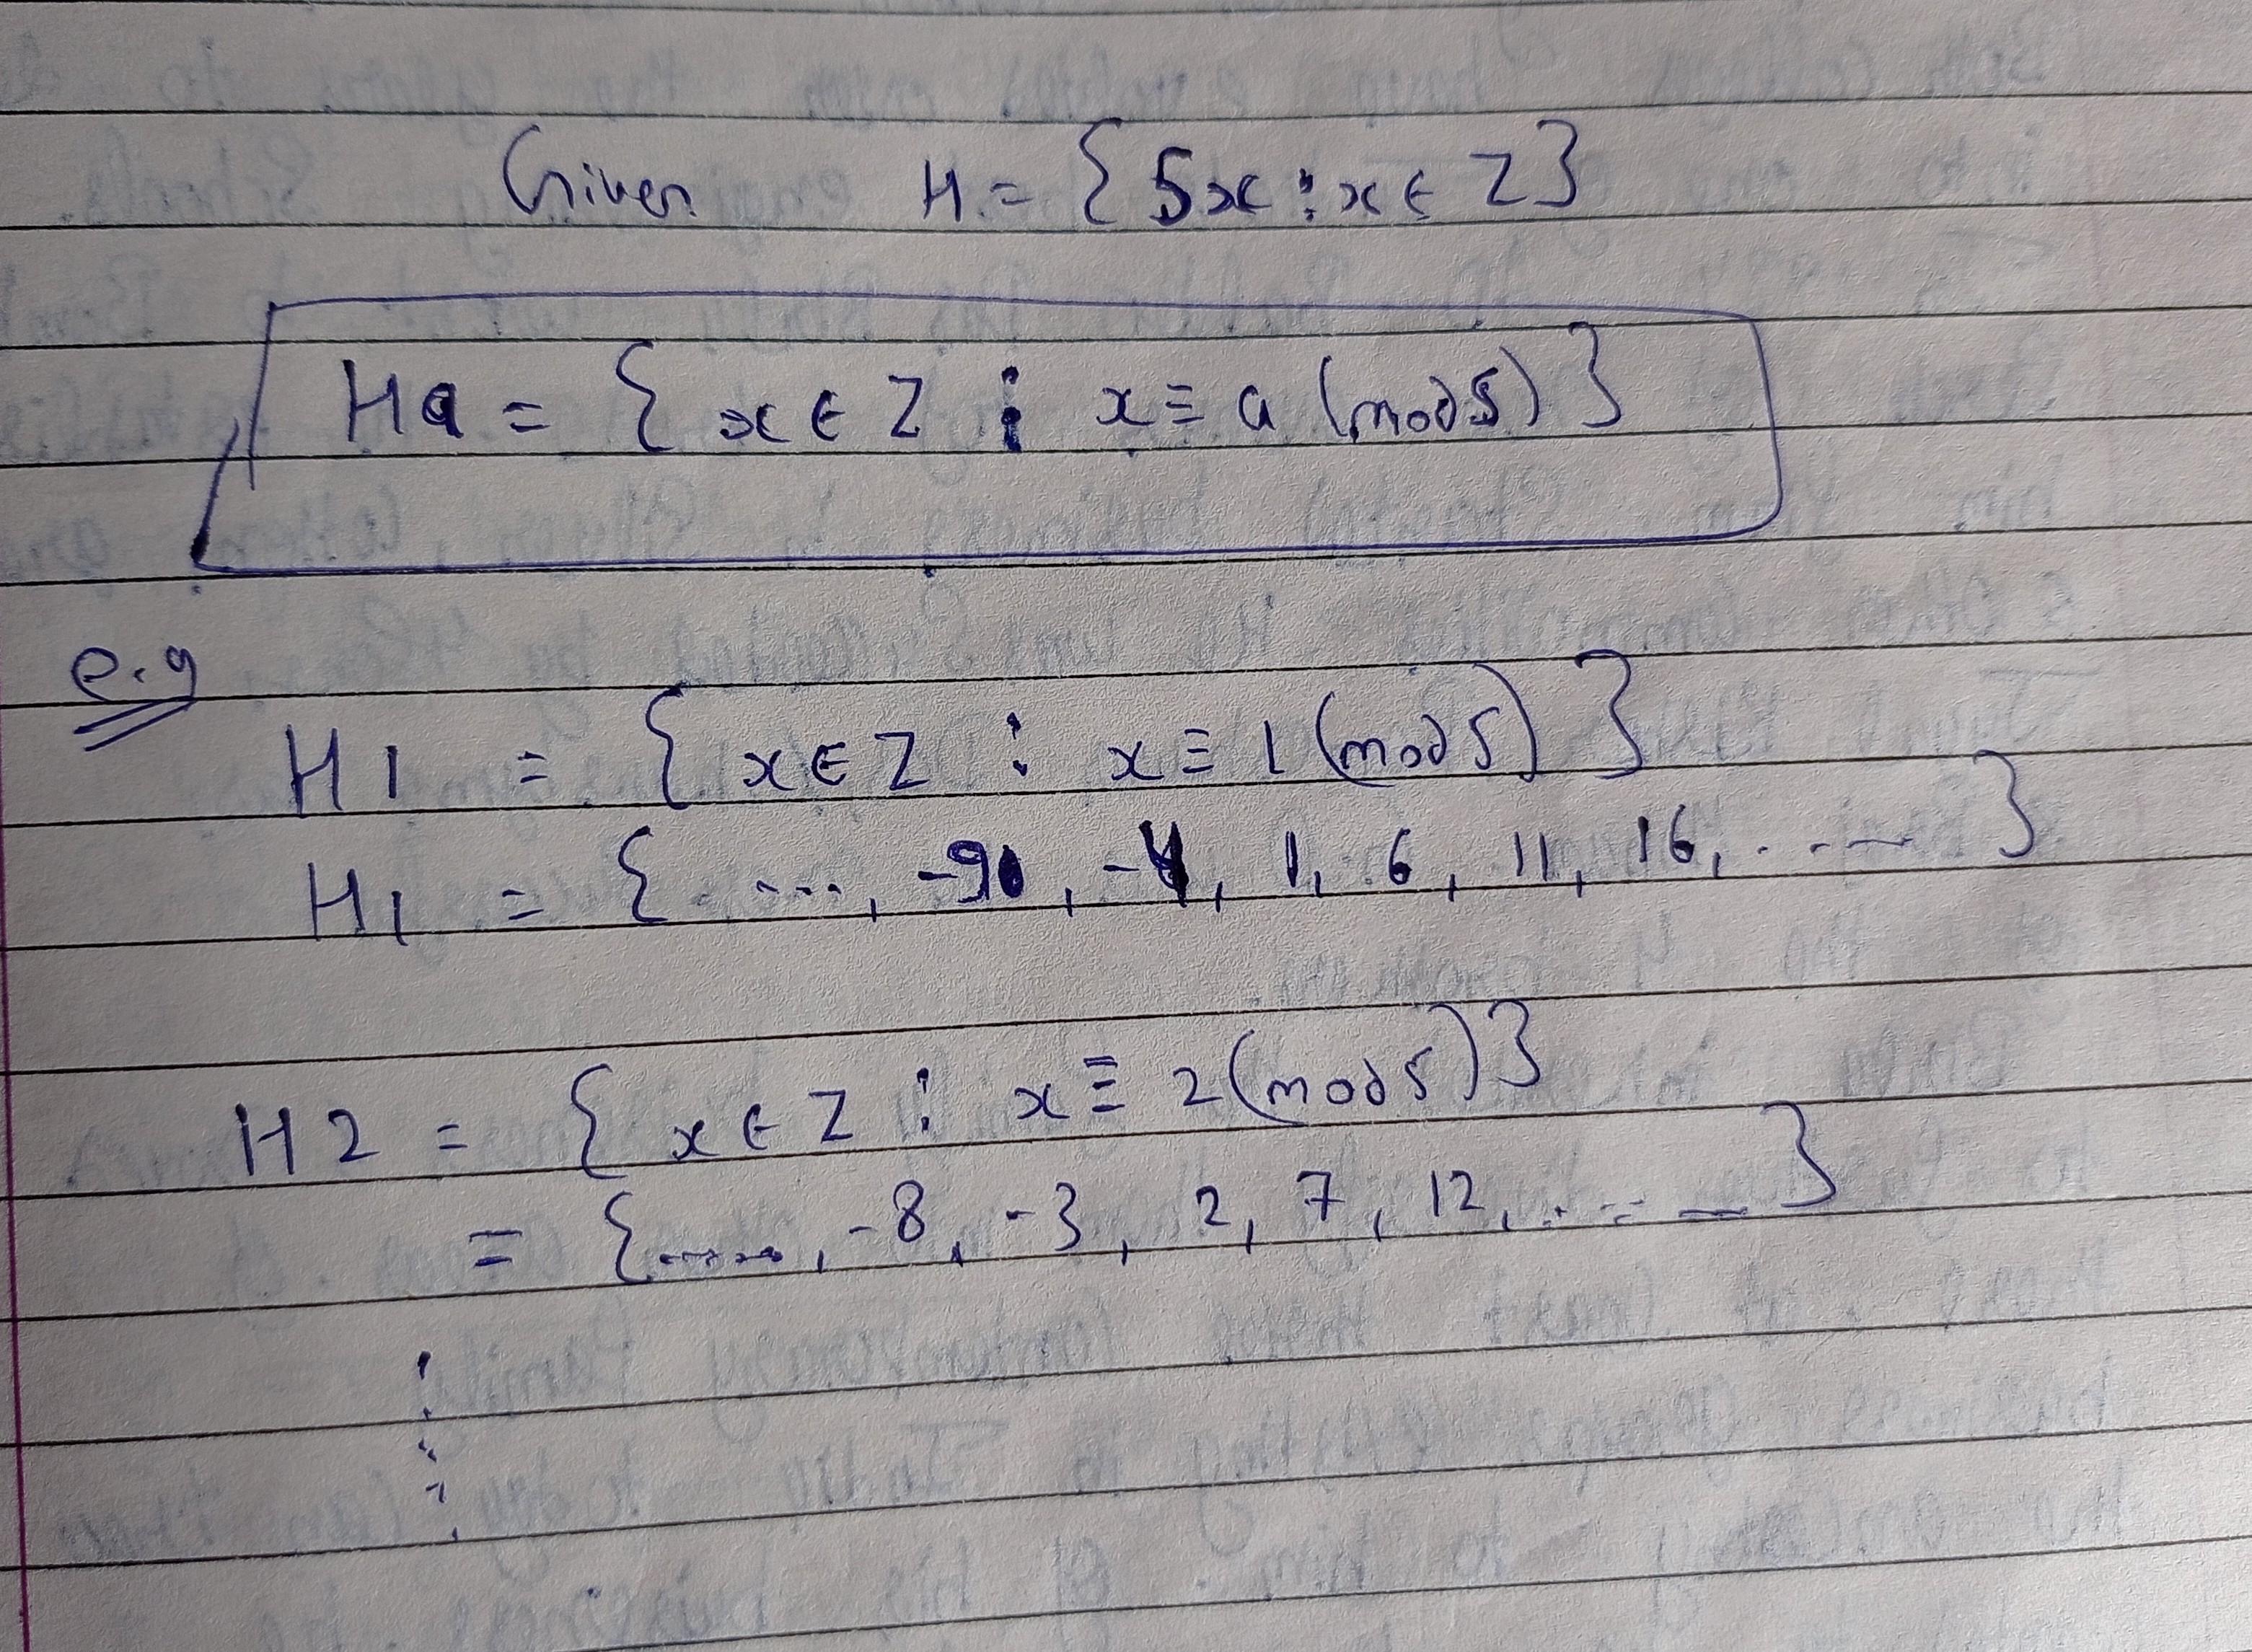 Given H = {5x : x ∈ Z}
Ha = { x ∈ Z : x ≡ a (mod 5) }
e.g
H1 = { x ∈ Z : x ≡ 1 (mod 5) }
H1 = { ...., , -4, 1, 6, 11, 16, ..... }
H2 = { x ∈ Z : x ≡ 2 (mod 5) }
= {......, -8, -3, 2, 7, 12, ..... }